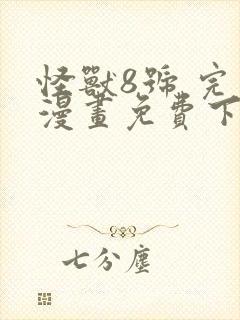 怪獸8號 完
漫畫免費下
七分塵